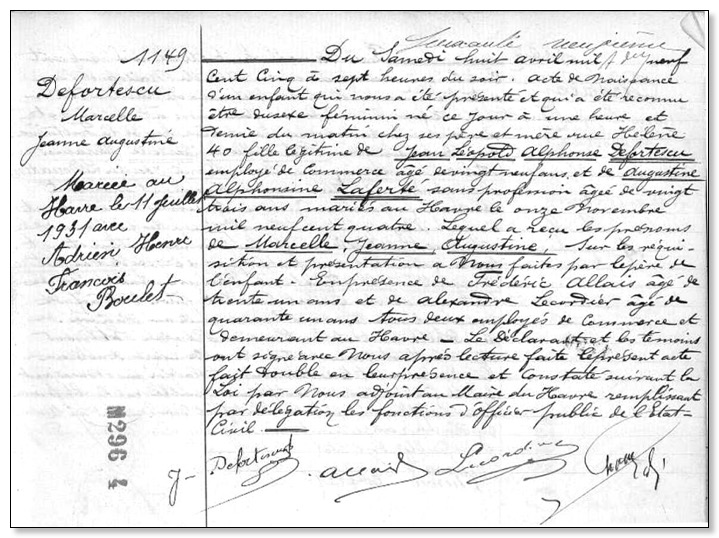 1149
Defortescu
Marcelle
Jeanne Augustine
Mariée au
Havre le 11 juillet
1931 avec
Adrien, Henri
François
Boulet
neuvième
Du Samedi huit avril mil neuf
Cent Cinq à sept heures du soir. acte de naissance
d'un enfant qui nous a été présenté et qui a été reconnu
être du sexe féminin né ce jour à une heure et
demie du matin chez ses père et mère rue Hélène
40 fille légitime de Jean Léopold Alphonse Defortescu
employé de Commerce âgé de vingt neuf ans, et de Augustine
Alphonsine Laferté sans profession âgée de vingt
trois ans mariés au Havre le onze Novembre
mil neuf cent quatre. Lequel a reçu les prénoms
de Marcelle, Jeanne, Augustine. Sur les réqui-
sition et présentation à Nous faites par le père de
l'enfant. En présence de Frédéric Allais âgé de
trente un ans et de Alexandre Lecordier âgé de
quarante un ans tous deux employés de Commerce et
demeurant au Havre — Le Déclarant et les témoins
ont signé avec Nous après lecture faite le présent acte
fait double en leur présence et Constaté suivant la
Loi par Nous adjoint au Maire du Havre remplissant
par délégation les fonctions d'officier public de l'Etat-
Civil
Defortescu
M296 4